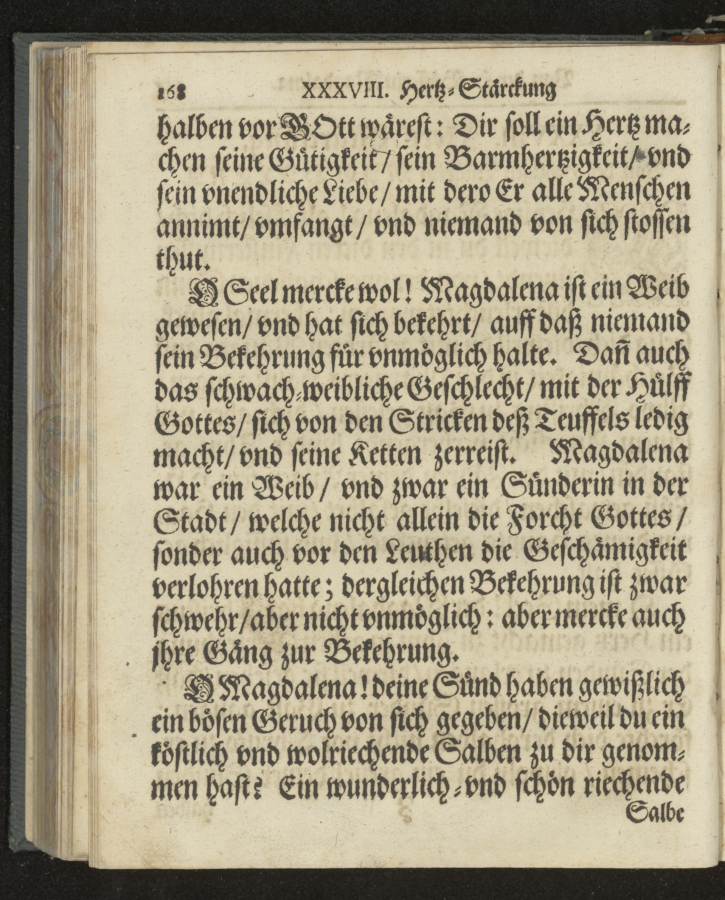 168 XXXVIII. Hertz-Stärckung
halben vor GOtt wärest: Dir soll ein Hertz ma-
chen seine Gütigkeit/ sein Barmhertzigkeit/ vnd
sein vnendliche Liebe/ mit dero Er alle Menschen
annimt/ vmfangt/ vnd niemand von sich stossen
thut.
O Seel mercke wol! Magdalena ist ein Weib
gewesen/ vnd hat sich bekehrt/ auff daß niemand
sein Bekehrung für vnmöglich halte. Dañ auch
das schwach-weibliche Geschlecht/ mit der Hülff
Gottes/ sich von den Stricken deß Teuffels ledig
macht/ vnd seine Ketten zerreist. Magdalena
war ein Weib/ vnd zwar ein Sünderin in der
Stadt/ welche nicht allein die Forcht Gottes/
sonder auch vor den Leuthen die Geschämigkeit
verlohren hatte; dergleichen Bekehrung ist zwar
schwehr/ aber nicht vnmöglich: aber mercke auch
jhre Gäng zur Bekehrung.
O Magdalena! deine Sünd haben gewißlich
ein bösen Geruch von sich gegeben/ dieweil du ein
köstlich vnd wolriechende Salben zu dir genom-
men hast? Ein wunderlich-vnd schön riechende
Salbe